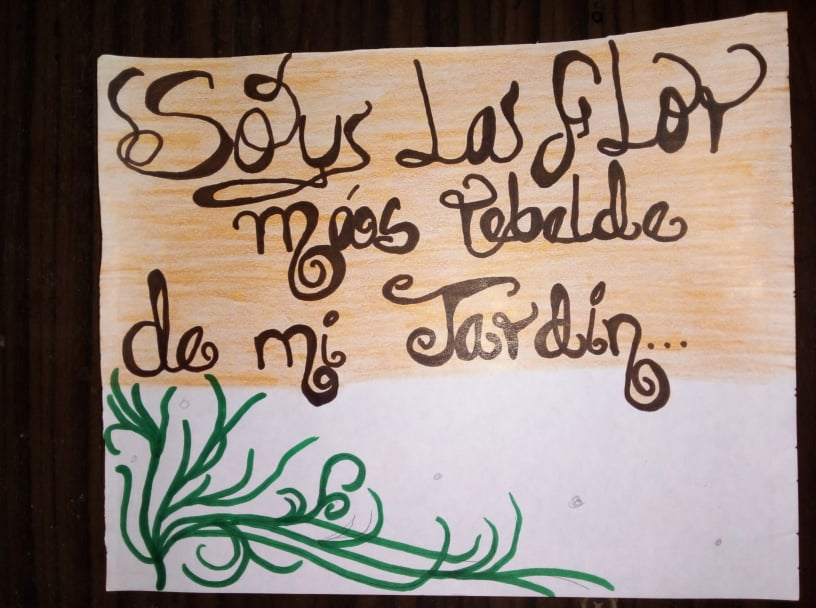 Sóus Las FLor
más rebelde
de mi Jardín...